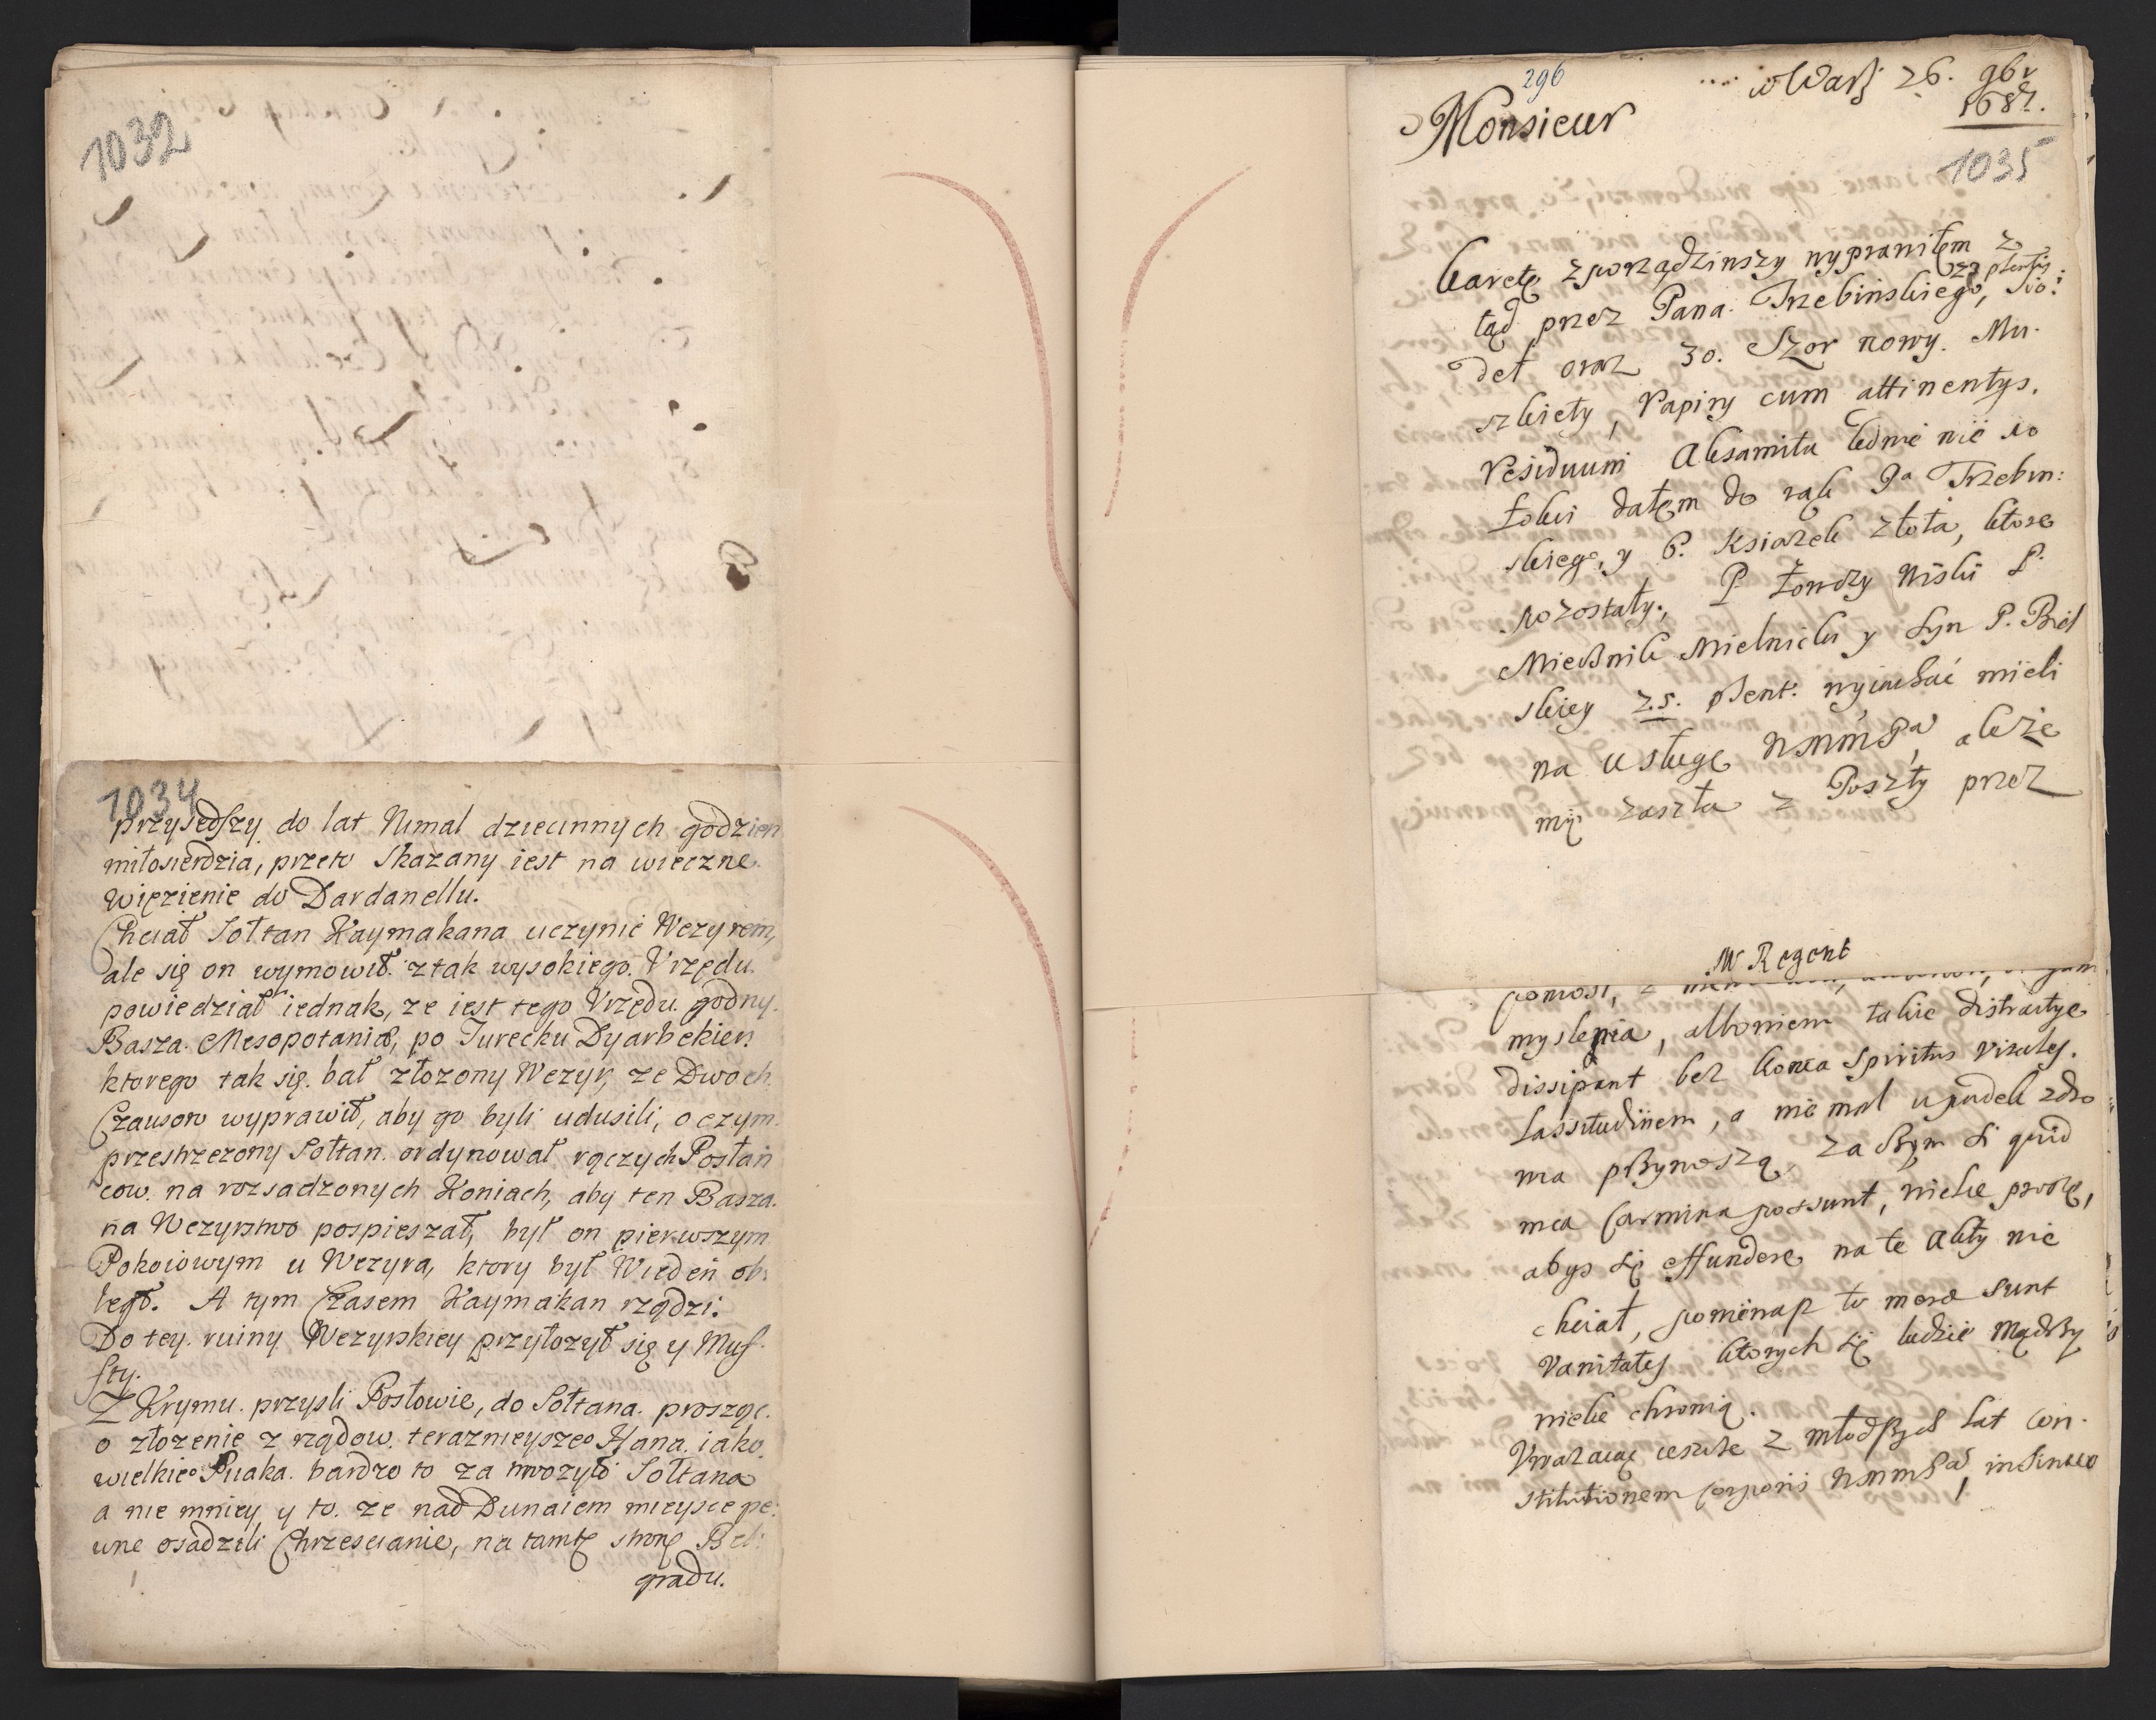 1032
1034
przyszedszy do lat Nimal dziecinnych godzien
miłosierdzia, przeto skazany iest na wieczne
więzienie do Dardanellu.
Chciał Sołtan Kaymakana uczynić Wezyrem,
ale się on wymowił z tak wysokiego Vrzędu
powiedział iednak, ze iest tego Vrzędu godny
Basza Mesopotaniæ, po Turecku Dyarbekier
ktorego tak się bał złozony Wezyr, ze Dwoch
Czausow wyprawił, aby go byli udusili, o czym
przestrzezony Sołtan ordynował rączych Posłań
cow na rozsadzonych Koniach, aby ten Basza
na Wezyrstwo pospieszał, był on pierwszym
Pokoiowym u Wezyra, ktory był Wiedeń ob:
legł. A tym Czasem Kaymakan rządzi.
Do tey ruiny Wezyrskiey przyłozył się y Muf
fty.
Z Krymu przysli Posłowie, do Sołtana prosząc
o złozenie z rządow terazneyszeo Hana iako
wielkieo Piiaka bardzo to zatrwozyło Sołtana
a nie mniey y to ze nad Dunaiem mieysce pe:
wne osadzili Chrzescianie, na tamtę stronę Bel:
gradu.
296
w Warß 26. 9br
1687.
Monsieur
1035
karetę zporządziwszy wyprawiłem z
tąd przez Pana Trzebińskiego,
det oraz 30. Szor nowy. Mu-
szkiety, Papiry cum attinentys.
Residuum Aksamitu ledwie nie 10
Łokci dałem do rąk Pa Trzebin:
skiego, y 6. Ksiązek złota, ktore
pozostały. P
Mielnicki y Syn P. Biel
skiey 25. wyiachać mieli
na usługę WMMPa, alisze
mię zaszła z Poszty przez
W Regent
myslenia, albowiem takie distractye
dissipant bez konca Spiritus vitales.
Lassitudinem, a nie mal upadek zdro
wia pßynoszą, zaczym si quid
mea Carmina possunt, wielce proszę,
abys się effundere na te akty nie
chciał, poniewaß to meræ sunt
Vanitates ktorych się ludzie Mądrzy
wielce chronią.
Vwazaiąc ieszcze z młodßych lat con-
stitutionem Corporis WMMPa, insinuo